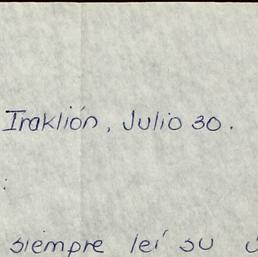 Iraklión, Julio 30.
:
siempre leí su ú